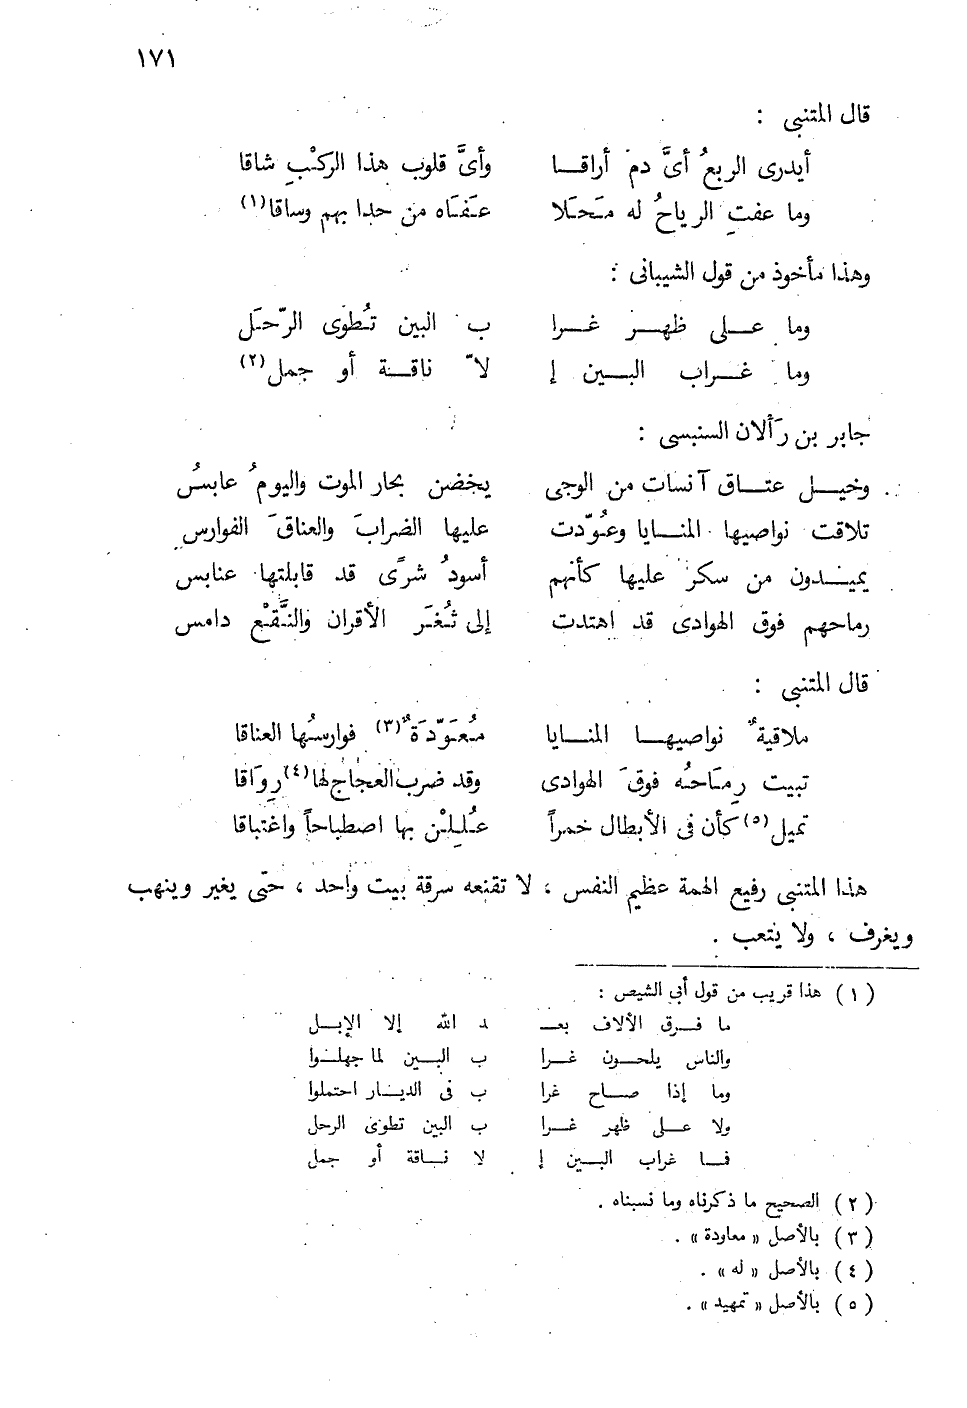 ١٧١
قال المتنبى :
أيدرى الربعُ أىَّ دم أراقـــا وأىَّ قلوب هذا الركْبِ شاقا
وما عفتِ الرياحُ له مَـحَـلا عـَفـَاه من حدا بهم وساقا(١)
وهذا مأخوذ من قول الشيبانى :
وما عـــلى ظهـــر غـــرا ب البين تـُطوى الرّحـَل
وما غـــراب البـــين إ لاّ ناقـــة أو جمل(٢)
جابر بن رَألان السنبسى :
وخيـــل عتـــاق آنسات من الوجى يخضن بحار الموت واليومُ عابسُ
تلاقت نواصيها المنـــايا وعُوّدت عليها الضرابَ والعناقَ الفوارس
يميـــدون من سكر عليها كأنهم أسودُ شرًى قد قابلتها عنابس
رماحهم فوق الهوادى قد اهتدت إلى ثـُغـَر الأقران والنَّقـْع دامس
قال المتنبى :
ملاقيةٌ نواصيهـــا المنـــايا مـُعـَوّدَةٌ(٣) فوارسـُها العناقا
تبيت رِمـَاحـُه فوقَ الهوادى وقد ضرب العجاج لها(٤) رِواقا
تميل(٥) كأن فى الأبطال خمراً عـُلـِلـْن بها اصطباحاً واغتباقا
هذا المتنبى رفيع الهمة عظيم النفس ، لا تقنعه سرقة بيت واحد ، حتى يغير وينهب
ويغرف ، ولا يتعب .
(١) هذا قريب من قول أبى الشيص :
ما فـــرق الألاف بعـــ د الله إلا الإبـــل
والناس يلحـــون غـــرا ب البـــين لما جهلـــوا
وما إذا صـــاح غرا ب فى الديـــار احتملوا
ولا عـــلى ظهر غـــرا ب البين تطوى الرحل
فـــا غراب البـــين إ لا نـــاقة أو جمل
(٢) الصحيح ما ذكرناه وما نسبناه .
(٣) بالأصل « معاودة » .
(٤) بالأصل « له » .
(٥) بالأصل « تمهيد » .